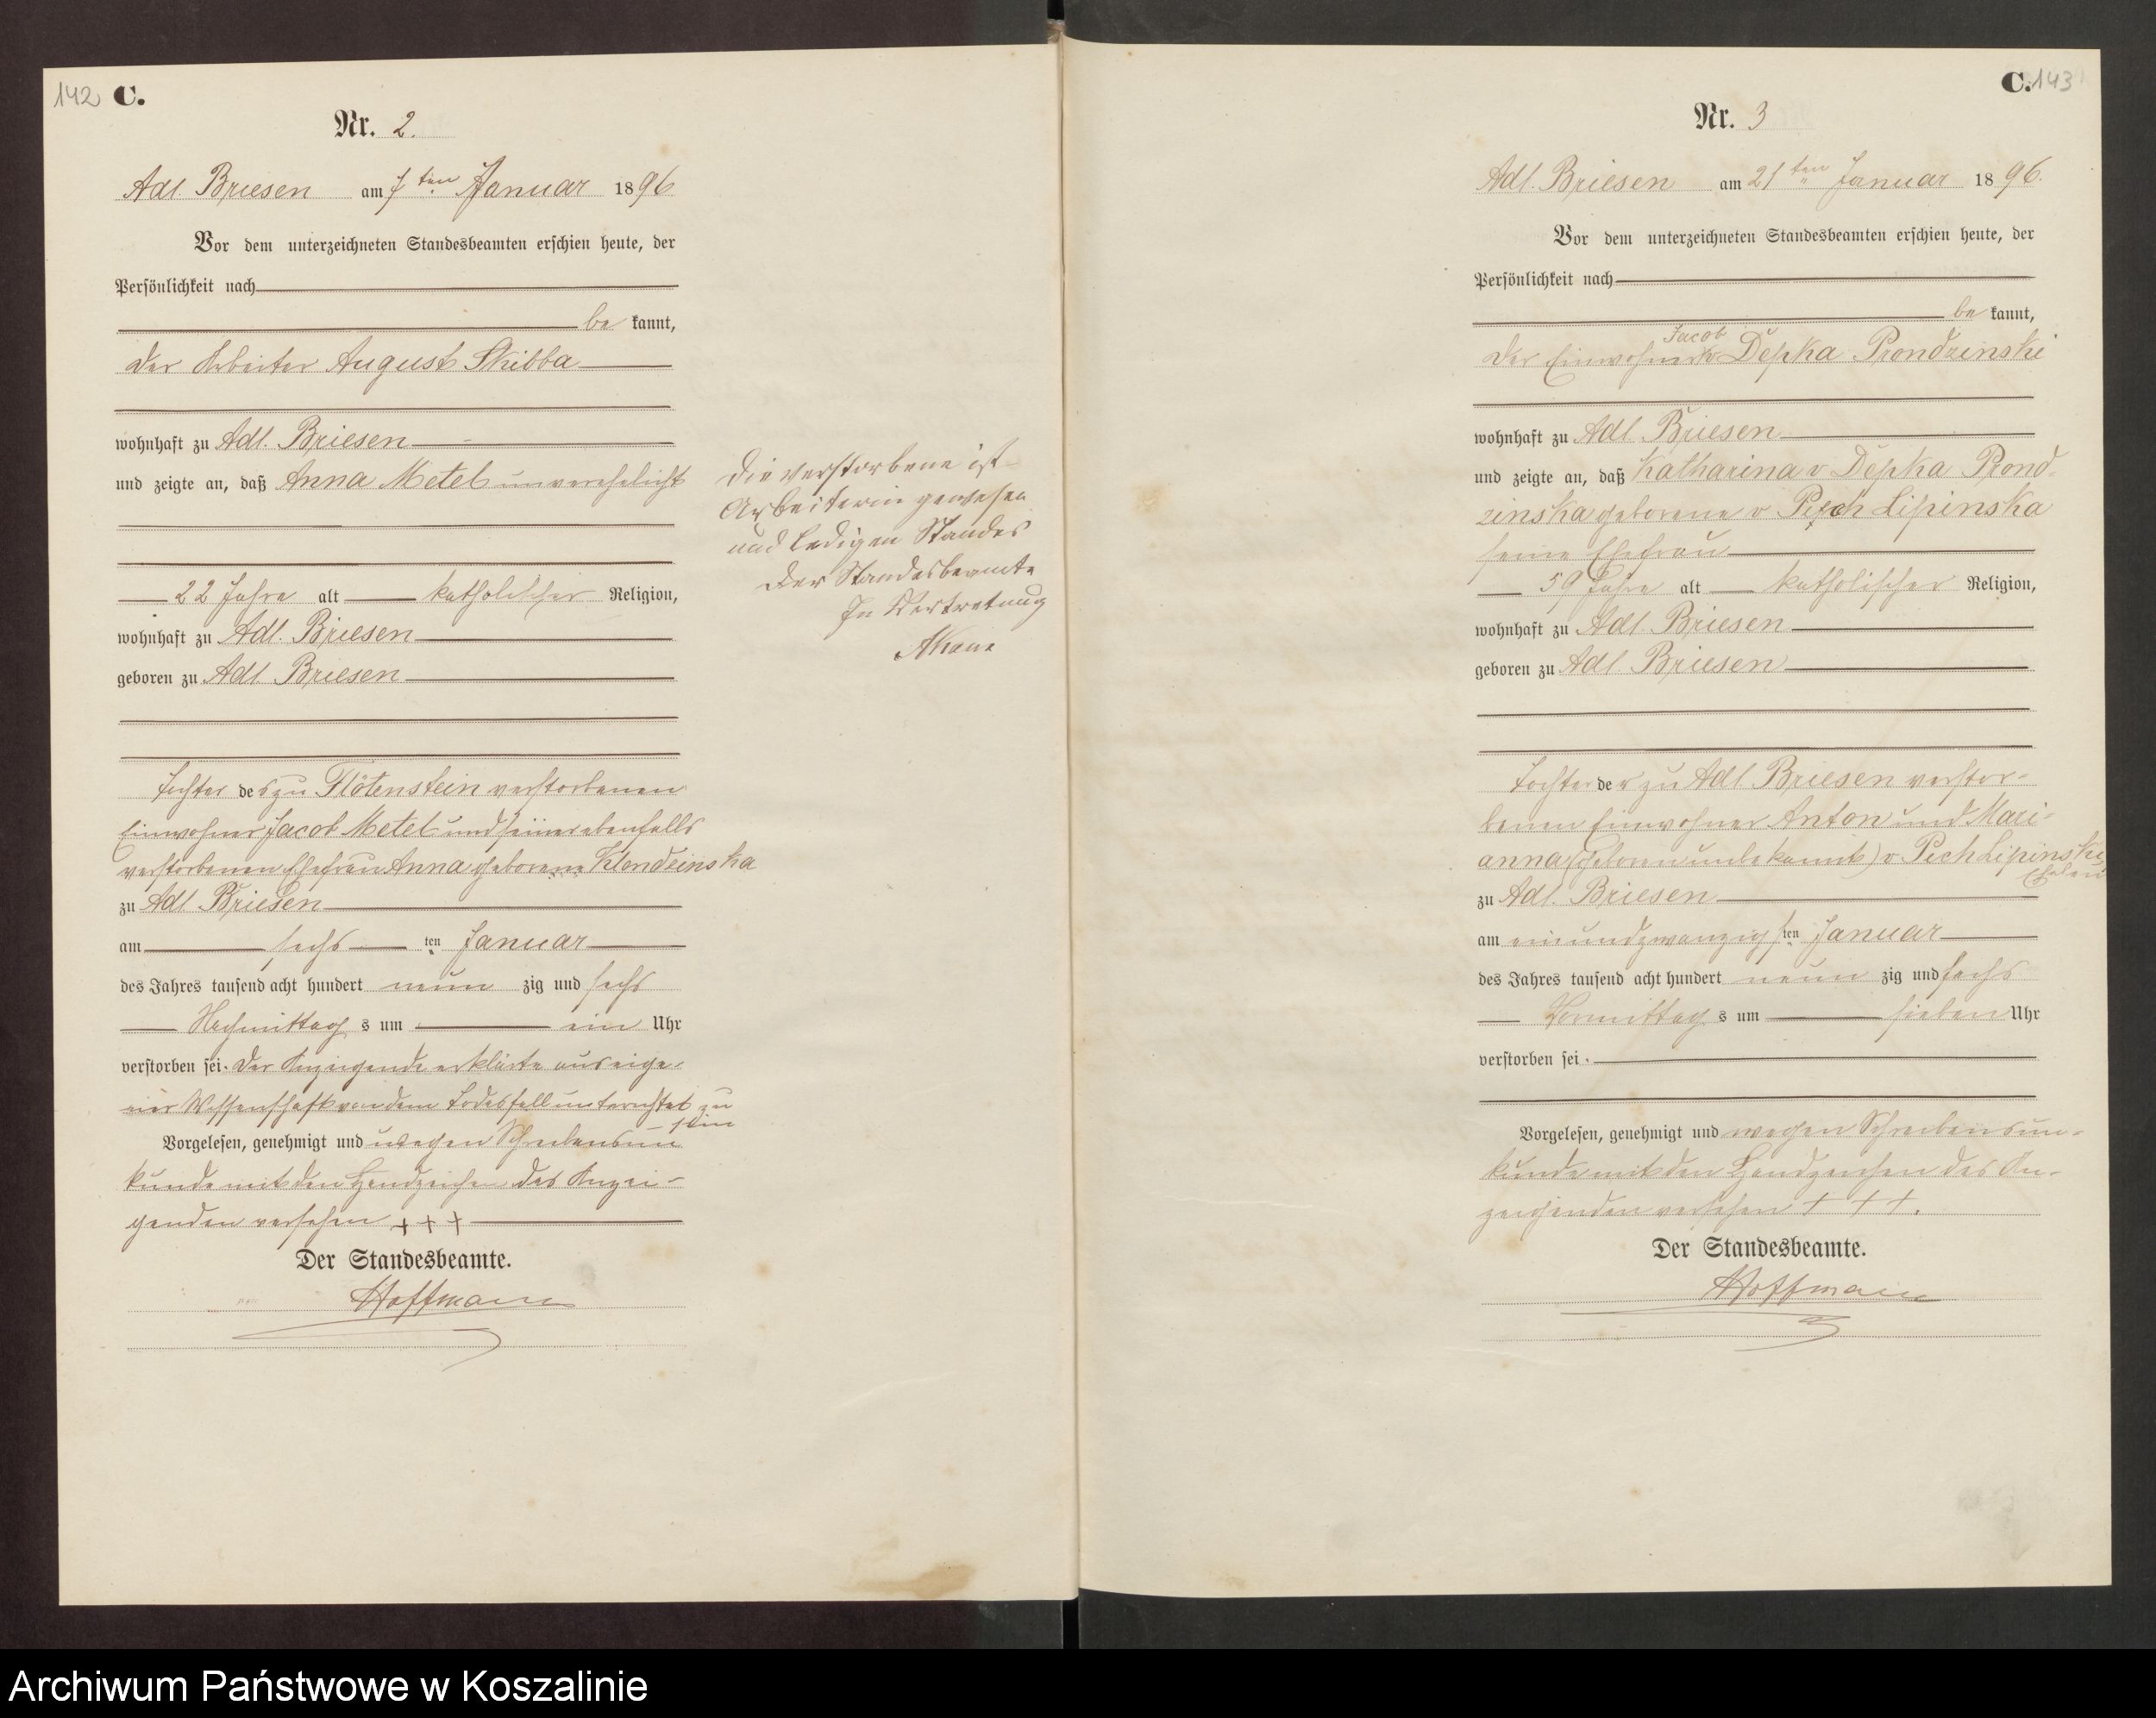 142 C.
Nr. 2.
Adl Briesen am 7ten Januar 1896
Vor dem unterzeichneten Standesbeamten erschien heute, der
Persönlichkeit nach
be kannt,
der Arbeiter August Skibba
wohnhaft zu Adl. Briesen
und zeigte an, daß Anna Metel unverehelicht
22 Jahre alt katholischer Religion,
wohnhaft zu Adl. Briesen
geboren zu Adl Briesen
Tochter des zu Flötenstein verstorbenen
Einwohner Jacob Metel und seiner ebenfalls
verstorbenen Ehefrau Anna geborene
zu Adl Briesen
am sechs ten Januar
des Jahres tausend acht hundert neun zig und sechs
Nachmittag s um ein Uhr
verstorben sei. Der Anzeigende erklärte aus eige-
ner Wissenschaft von dem Todesfall unterrichtet zu
sein
Vorgelesen, genehmigt und wegen Schreibensun-
kunde mit den Handzeichen des Anzei-
genden versehen + + +
Der Standesbeamte.
Hoffmann
Die Verstorbene ist
Arbeiterin gewesen
und ledigen Standes
Der Standesbeamte
In Vertretung
C. 143
Nr. 3
Adl. Briesen am 21ten Januar 1896.
Vor dem unterzeichneten Standesbeamten erschien heute, der
Persönlichkeit nach
be kannt,
Jacob
der Einwohner Depka Prondzinski
wohnhaft zu Adl. Briesen
und zeigte an, daß Katharina v Depka Prond-
zinska geborene v Pech Lipinska
seine Ehefrau
59 Jahre alt katholischer Religion,
wohnhaft zu Adl. Briesen
geboren zu Adl. Briesen
Tochter der zu Adl Briesen verstor-
benen Einwohner Anton und Mari-
anna (geborene unbekannt) v. Pech Lipinski
Eheleu
zu Adl. Briesen
am einundzwanzigsten Januar
des Jahres tausend acht hundert neun zig und sechs
Vormittag s um sieben Uhr
verstorben sei.
Vorgelesen, genehmigt und wegen Schreibensun-
kunde mit den Handzeichen des An-
zeigenden versehen + + +.
Der Standesbeamte.
Hoffmann
Archiwum Państwowe w Koszalinie